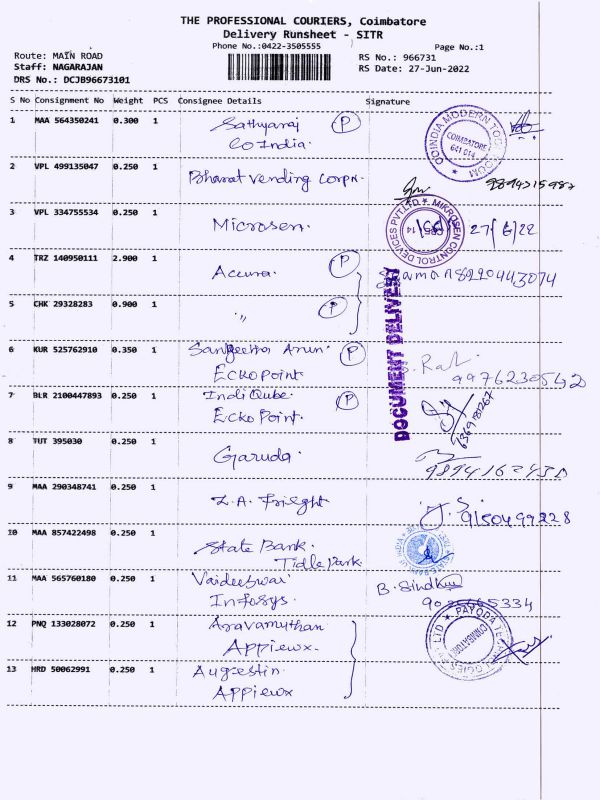 THE PROFESSIONAL COURIERS, Coimbatore
Delivery Runsheet - SITR
Phone No.:0422-3505555 Page No.:1
Route: MAIN ROAD RS No.: 966731
Staff: NAGARAJAN RS Date: 27-Jun-2022
DRS No.: DCJB96673101
S No Consignment No Weight PCS Consignee Details Signature
1 MAA 564350241 0.300 1 Sathyaraj P
CoIndia.
COINDIA MODERN TOOL ROOM
COIMBATORE
641 014
2 VPL 499135047 0.250 1 Bharat Vending Corpn.
9894315987
3 VPL 334755534 0.250 1 Microsen. 27/6/22
MIKROSEN CONTROL DEVICES PVT.LTD
4 TRZ 140950111 2.900 1 Accura P
8220443074
5 CHK 29328283 0.900 1 " P
DOCUMENT DELIVERY
6 KUR 525762910 0.350 1 Sangeetha Arun. P
Ecko Point
7 BLR 2100447893 0.250 1 IndiQube. P
Ecko Point.
6369781267
8 TUT 395030 0.250 1 Garuda.
9 MAA 290348741 0.250 1 Z.A. Frieght
9150499228
10 MAA 857422498 0.250 1 State Bank.
Tidle Park.
11 MAA 565760180 0.250 1 Vaideeswar B. Sindhu
Infosys.
12 PNQ 133028072 0.250 1 Aravamuthan
Appiewx.
PAYODA
COIMBATORE
13 HRD 50062991 0.250 1 Augestin
Appiewx